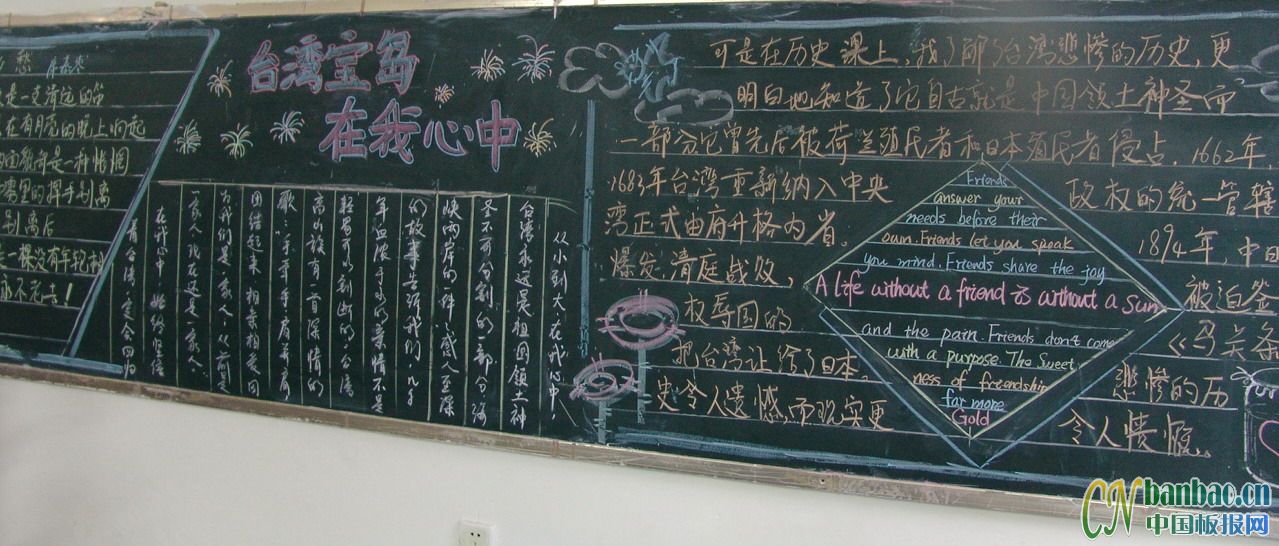 愁 席慕蓉
是一支清远的笛
在有月亮的晚上响起
面貌却是一种惆怅
雾里的挥手别离
别离后
一棵没有年轮的树
永不老去！
台湾宝岛
在我心中
从小到大，在我心中
台湾永远是祖国领土神
圣不可分割的一部分，海
峡两岸的一件件感人至深
的故事告诉我们，几千
年血浓于水的亲情不是
轻易可以割断的。台湾
高山族有一首深情的
歌，手牵手，肩并肩
团结起来，相亲相爱，因
为我们是一家人，从前是
一家人，现在还是一家人。
在我心中，始终坚信
台湾一定会回归
可是在历史课上，我了解台湾悲惨的历史，更
明白地知道了它自古就是中国领土神圣而
一部分它曾先后被荷兰殖民者和日本殖民者侵占，1662年，
1683年台湾重新纳入中央 政权的统一管辖
湾正式由府升格为省。 1894年，中日
爆发，清庭战败， 被迫签
权辱国的 《马关条
把台湾让给了日本。 悲惨的历
史令人遗憾而现实更 令人愤慨。
Friends
answer your
needs before their
own. Friends let you speak
you mind. Friends share the joy
A life without a friend is without a sun
and the pain. Friends don't come
with a purpose. The Sweet
ness of friendship
far more
Gold
CNbanbao.cn
中国板报网